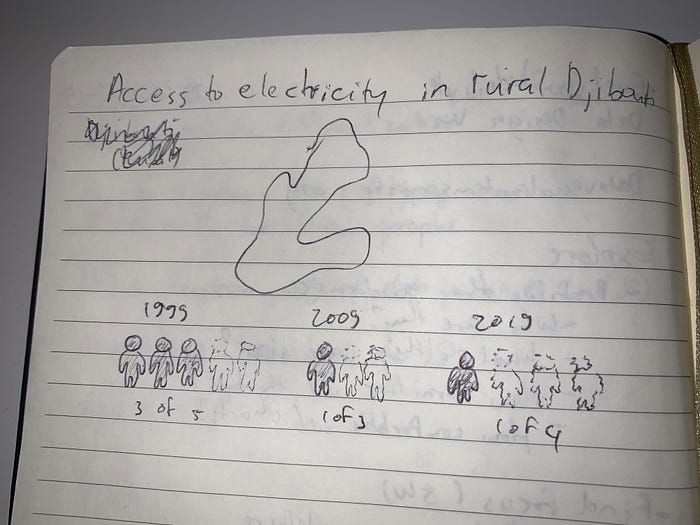 Access to electricity in rural Djibouti
Djibouti
1999 2009 2019
3 of 5 1 of 3 1 of 4